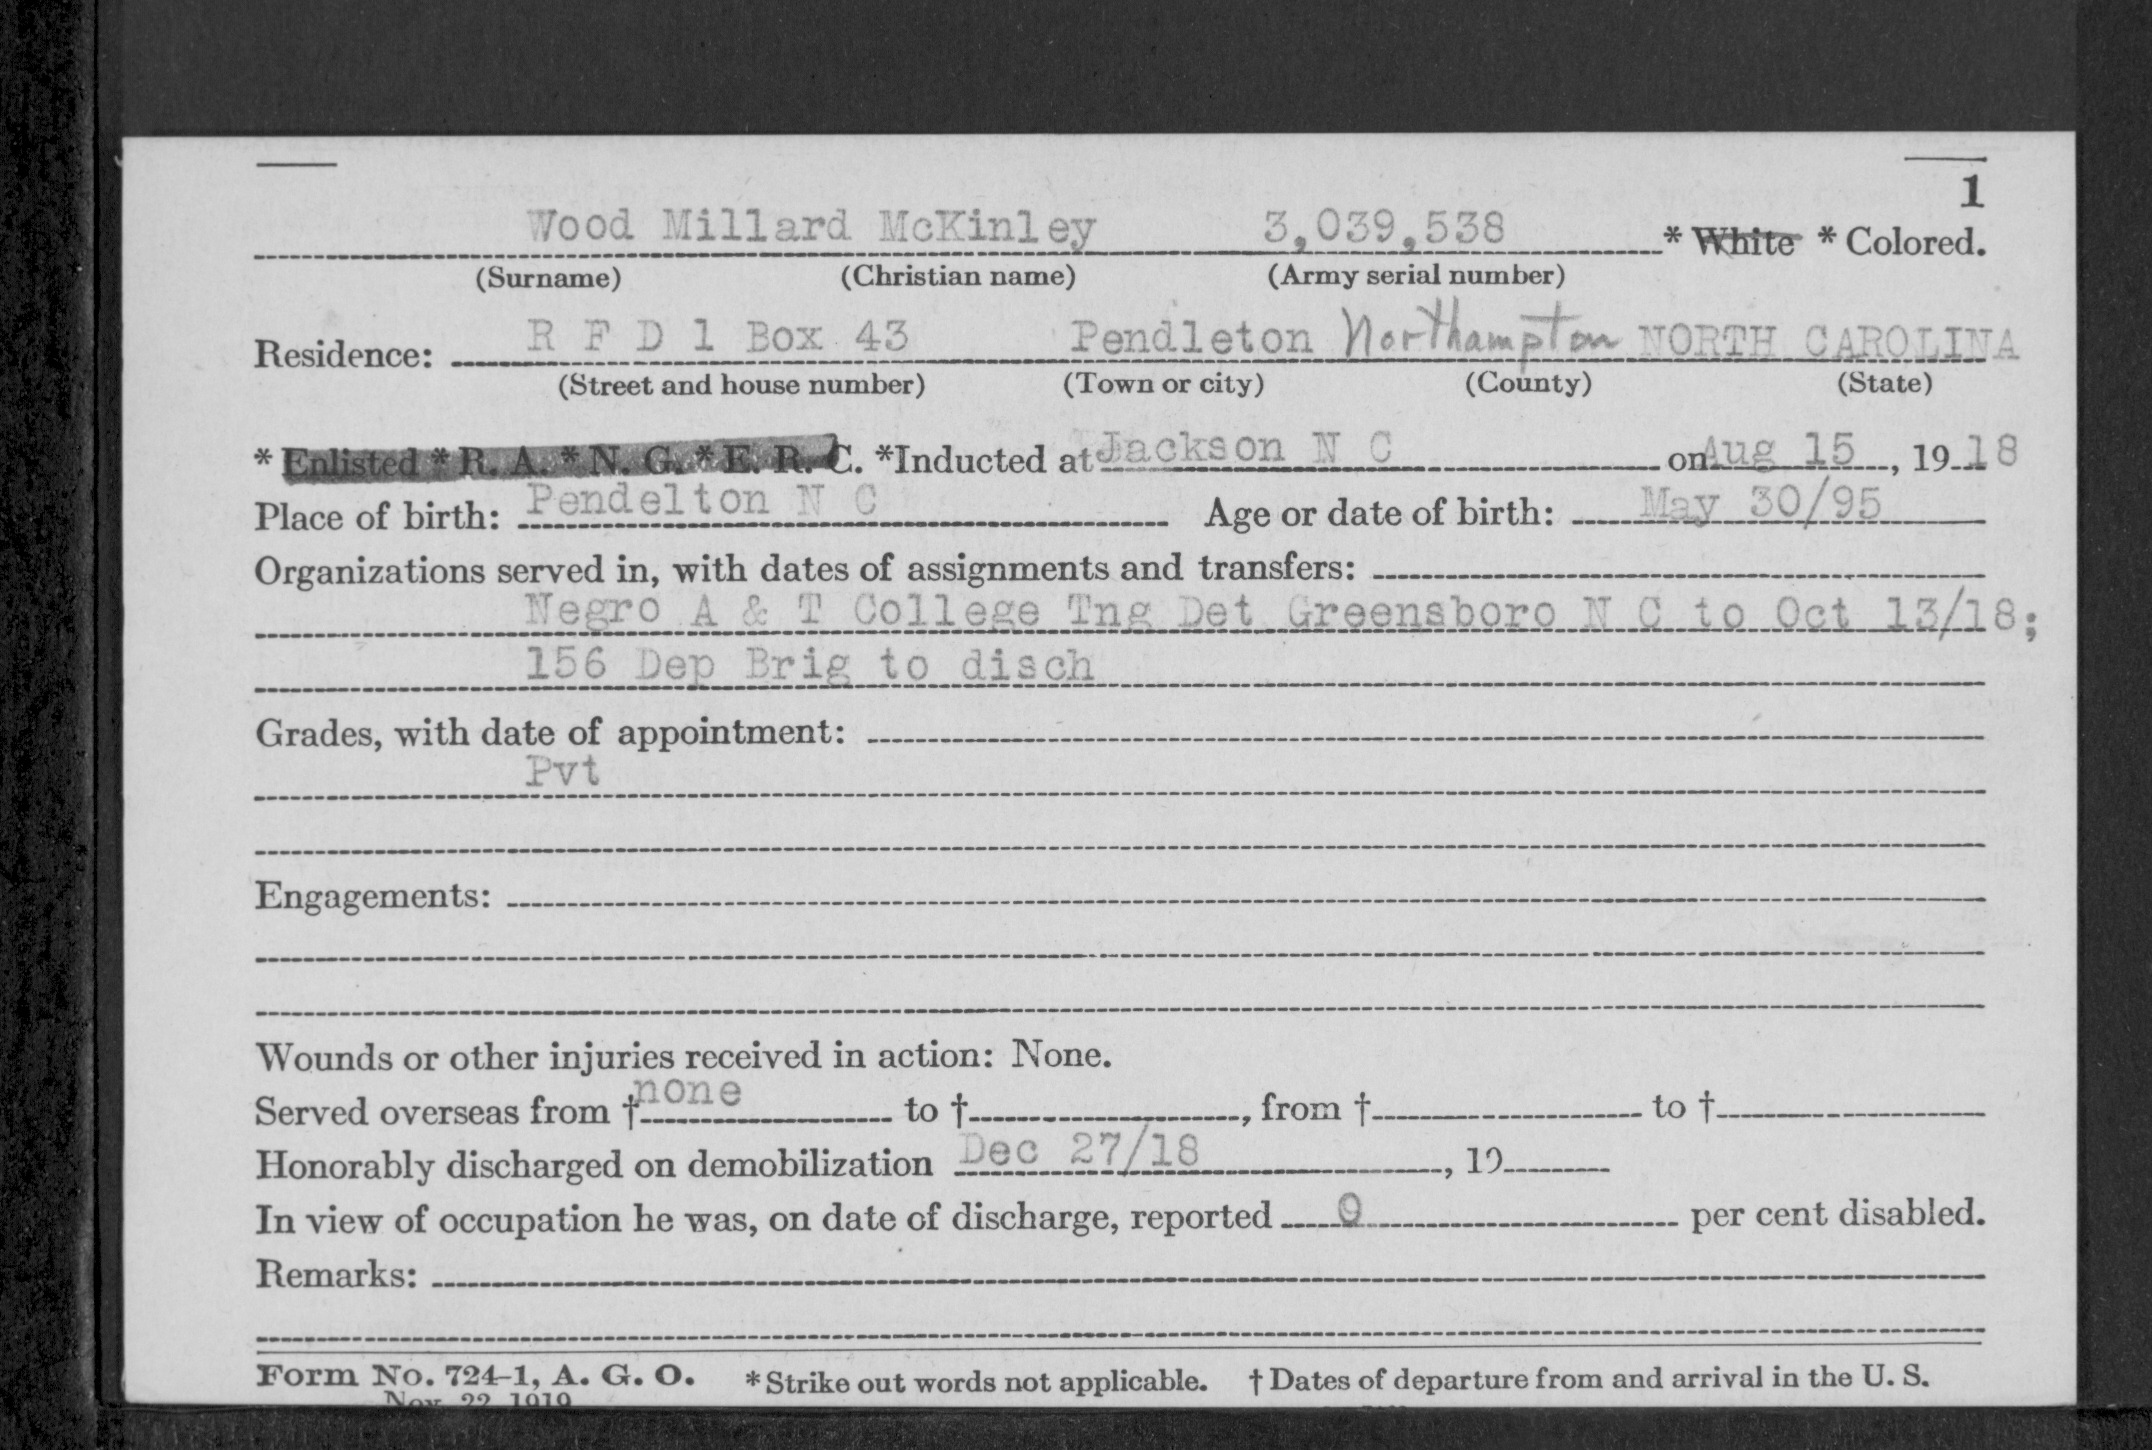 1
Wood Millard McKinley 3,039,538 * White * Colored.
(Surname) (Christian name) (Army serial number)
Residence: R F D 1 Box 43 Pendleton Northampton NORTH CAROLINA
(Street and house number) (Town or city) (County) (State)
* Enlisted * R. A. * N. G. * E. R. C. *Inducted at Jackson N C on Aug 15, 1918
Place of birth: Pendelton N C Age or date of birth: May 30/95
Organizations served in, with dates of assignments and transfers:
Negro A & T College Tng Det Greensboro N C to Oct 13/18;
156 Dep Brig to disch
Grades, with date of appointment:
Pvt
Engagements:
Wounds or other injuries received in action: None.
Served overseas from † none to †, from † to †
Honorably discharged on demobilization Dec 27/18, 19
In view of occupation he was, on date of discharge, reported 0 per cent disabled.
Remarks:
Form No. 724-1, A. G. O. * Strike out words not applicable. † Dates of departure from and arrival in the U. S.
Nov. 22, 1919